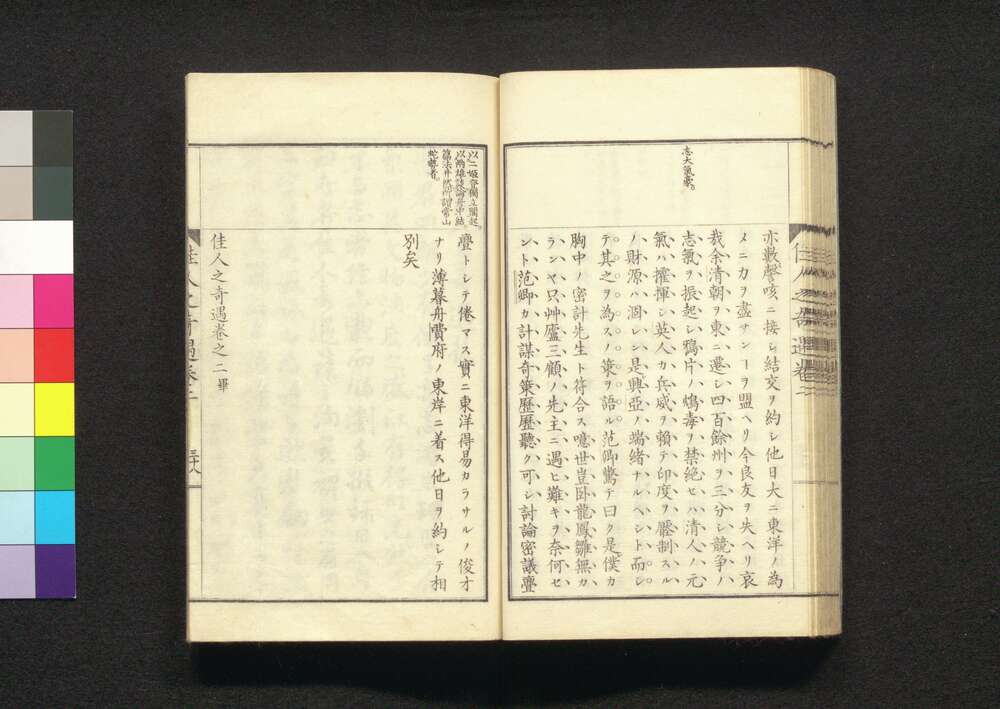 志大氣豪。
亦数謦咳ニ接シ結交ヲ約シ他日大ニ東洋ノ為
メニ力ヲ盡サンヿヲ盟ヘリ今良友ヲ失ヘリ哀
哉余清朝ヲ東ニ遷シ四百餘州ヲ三分シ競争ノ
志氣ヲ振起シ鴉片ノ鴆毒ヲ禁絶セハ清人ノ元
氣ハ擢揮シ英人カ兵威ヲ頼テ印度ヲ壓制スル
ノ財源ハ涸レン是興亞ノ端緒ナルヘシト而シ
テ其之ヲ為スノ策ヲ語ル范卿驚テ曰ク是僕カ
胸中ノ密計先生ト符合ス噫世豈臥龍鳳雛無カ
ランヤ只艸廬三顧ノ先主ニ遇ヒ難キヲ奈何セ
ント范卿カ計謀奇策歴歴聽ク可シ討論密議亹
以二姫登獨立閣起。
以兩雄談論舟中結。
篇法井然所謂常山
蛇勢者。
亹トシテ倦マス實ニ東洋得易カラサルノ俊才
ナリ薄暮舟費府ノ東岸ニ着ス他日ヲ約シテ相
別矣
佳人之奇遇巻之二畢
佳人之奇遇巻二